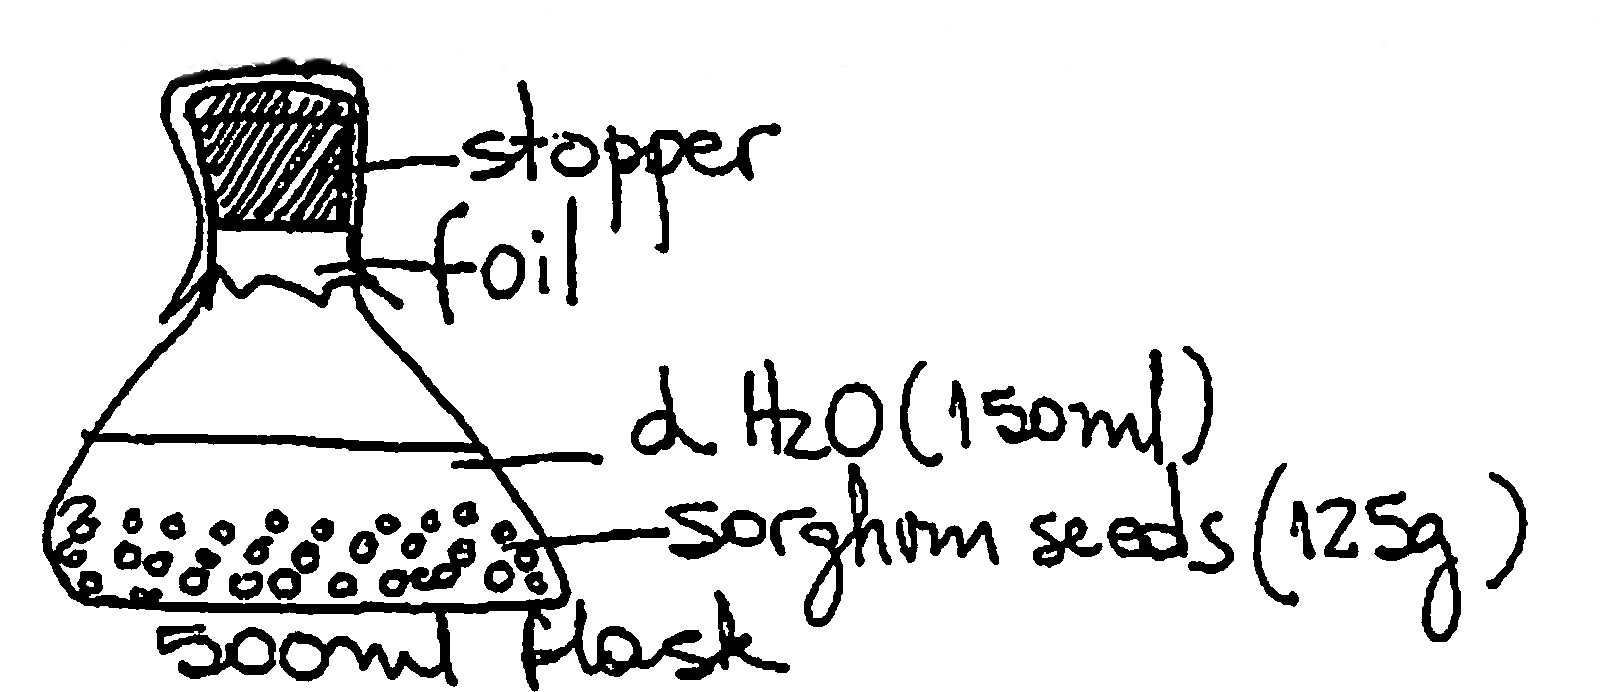 stopper
foil
d H2O (150ml)
sorghum seeds (125g)
500ml flask